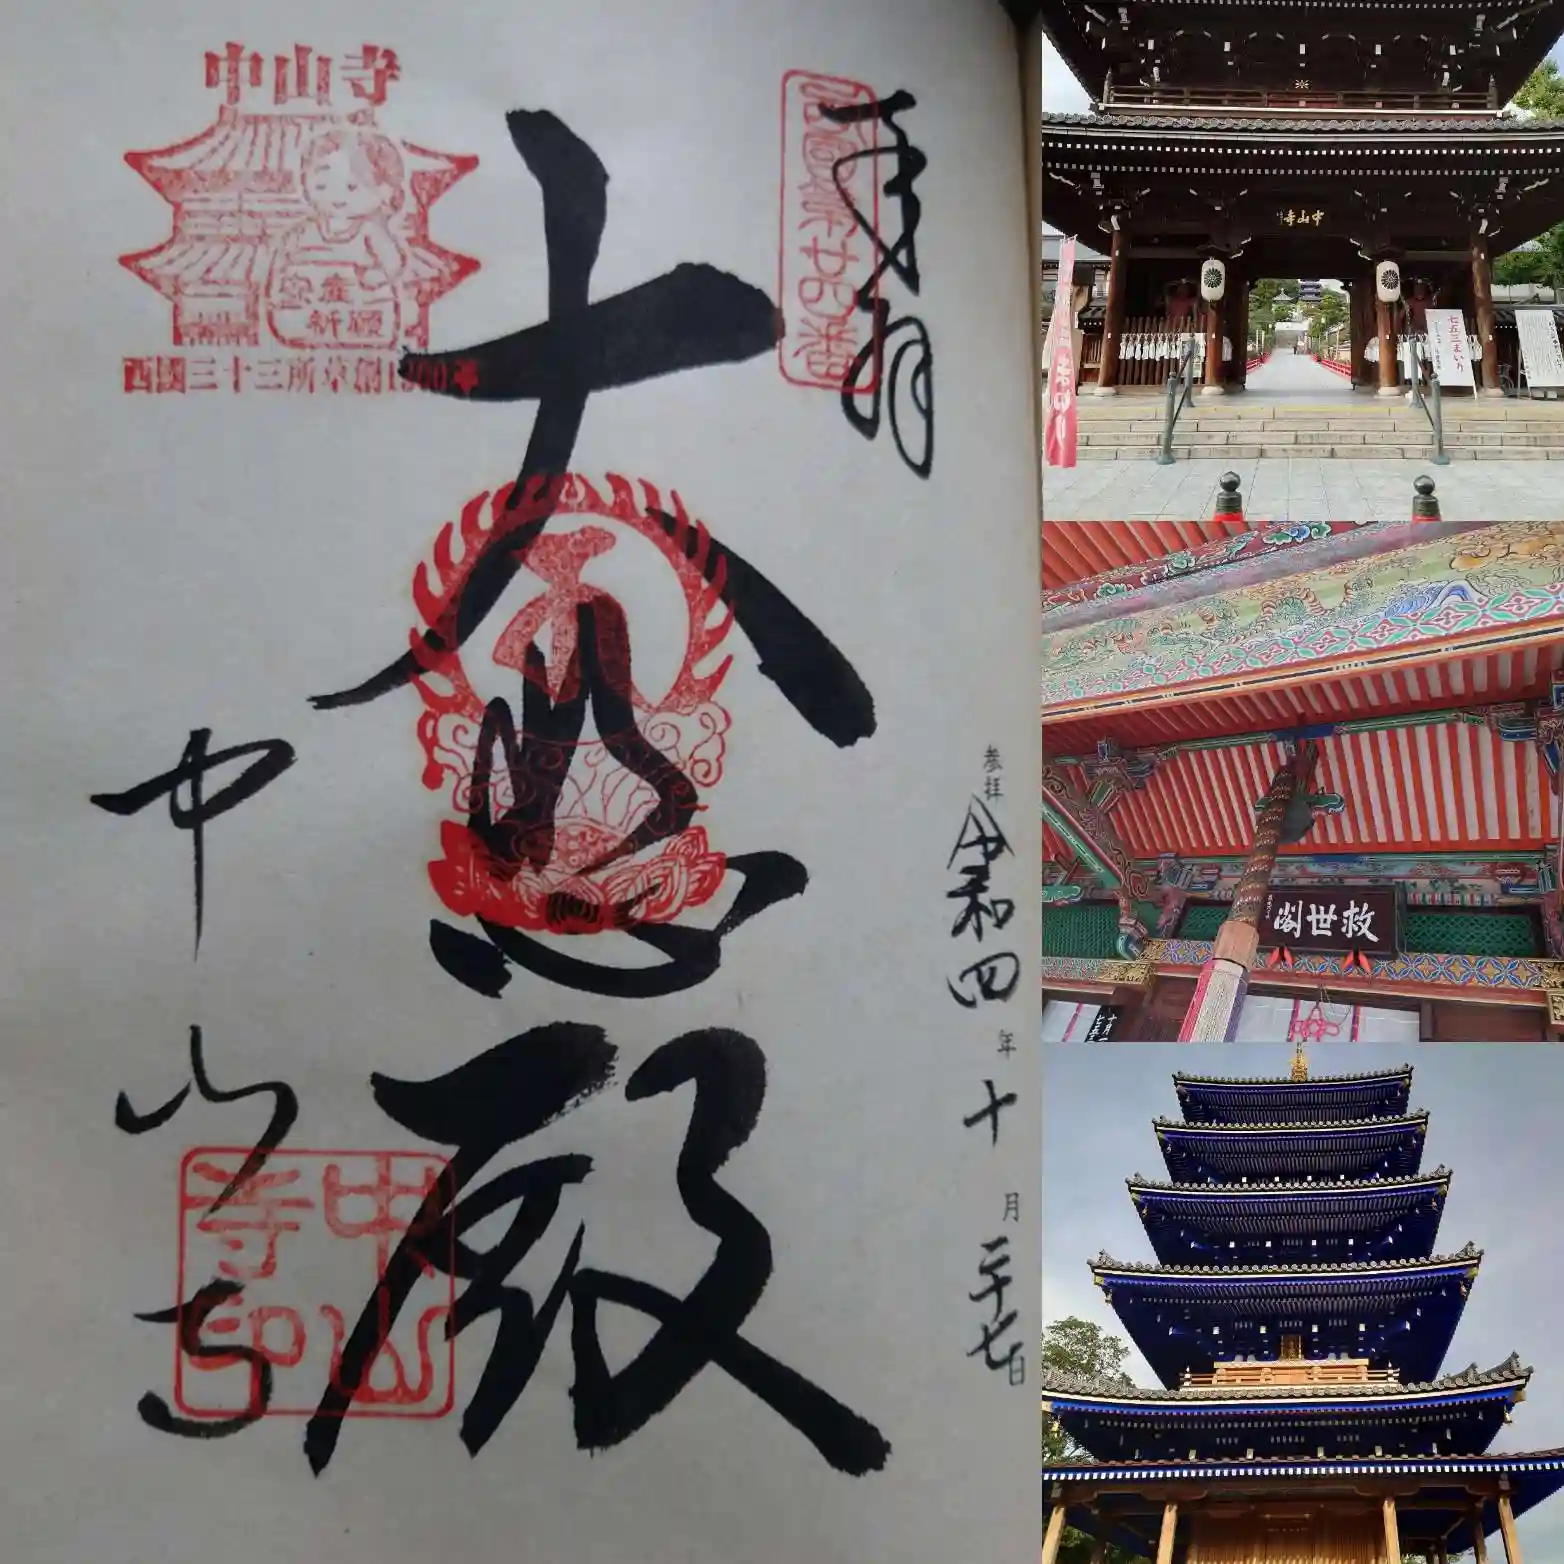 奉拝
西國第廿四番
大悲殿
中山寺
中山寺印
中山寺
安産
祈願
西國三十三所草創1300
参拝 令和四年十月二十七日
中山寺
七五三まいり
救世閣